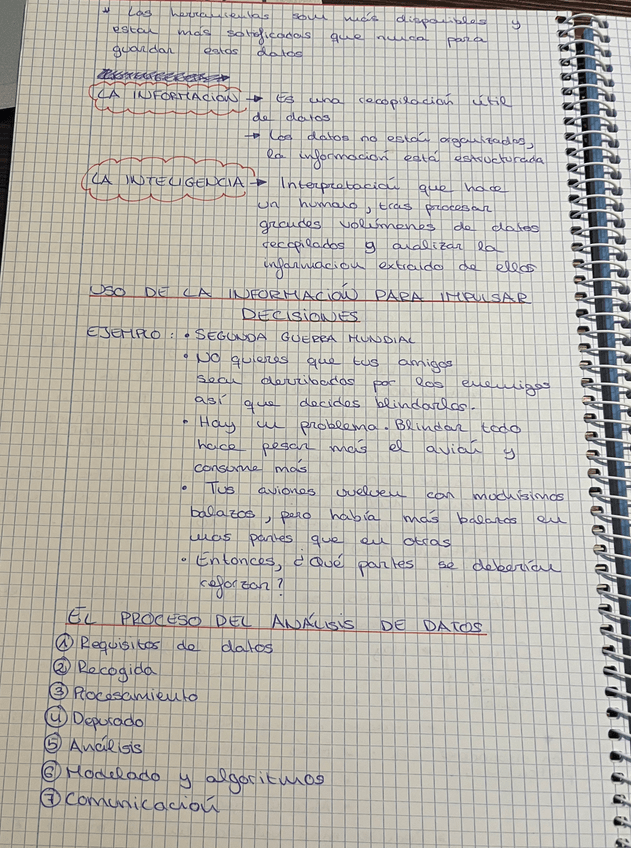 * Las herramientas son más disponibles y
estar mas soteficadas que nunca para
guardar estos datos
LA INFORMACIÓN → Es una recopilación útil
de datos
→ Los datos no están organizados,
la información está estructurada
LA INTELIGENCIA → Interpretación que hace
un humano, tras procesar
grandes volúmenes de datos
recopilados y analizar la
información extraido de ellos
USO DE LA INFORMACIÓN PARA IMPULSAR
DECISIONES
EJEMPLO: • SEGUNDA GUERRA MUNDIAL
• No quieres que tus amigos
sean derribados por los enemigos
así que decides blindarlos.
• Hay un problema. Blindar todo
hace pesar más el avión y
consume más
• Tus aviones vuelven con muchísimos
balazos, pero había más balazos en
unas partes que en otras
• Entonces, ¿Qué partes se deberían
reforzar?
EL PROCESO DEL ANÁLISIS DE DATOS
① Requisitos de datos
② Recogida
③ Procesamiento
④ Depurado
⑤ Análisis
⑥ Modelado y algoritmos
⑦ Comunicación